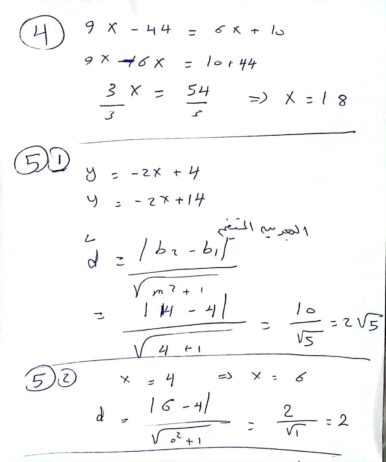 4
9x - 44 = 6x + 10
9x - 6x = 10 + 44
3/3 x = 54/3 => x = 18
5 1
y = -2x + 4
y = -2x + 14
d = |b2 - b1| / √m² + 1
= |14 - 4| / √4 + 1 = 10/√5 = 2√5
5 2
x = 4 => x = 6
d = |6 - 4| / √0² + 1 = 2/√1 = 2